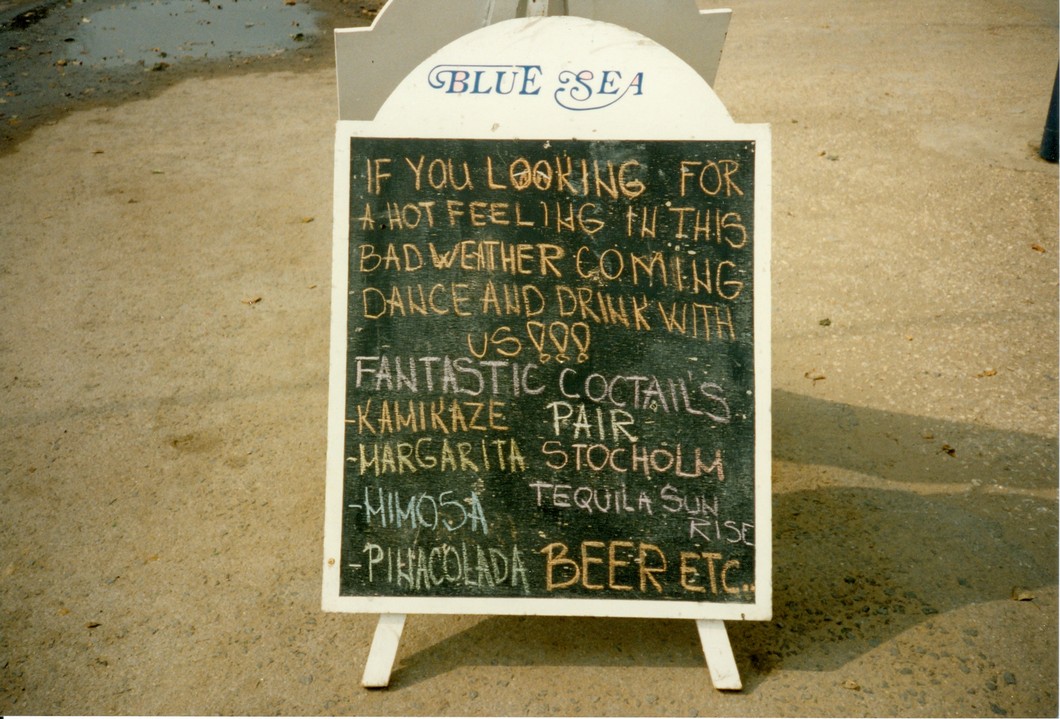 BLUE SEA
IF YOU LOOKING FOR
A HOT FEELING IN THIS
BAD WEATHER COMING
DANCE AND DRINK WITH
US!!!
FANTASTIC COCTAILS
-KAMIKAZE PAIR
-MARGARITA STOCHOLM
-MIMOSA TEQUILA SUN
RISE
-PINACOLADA BEER ETC..